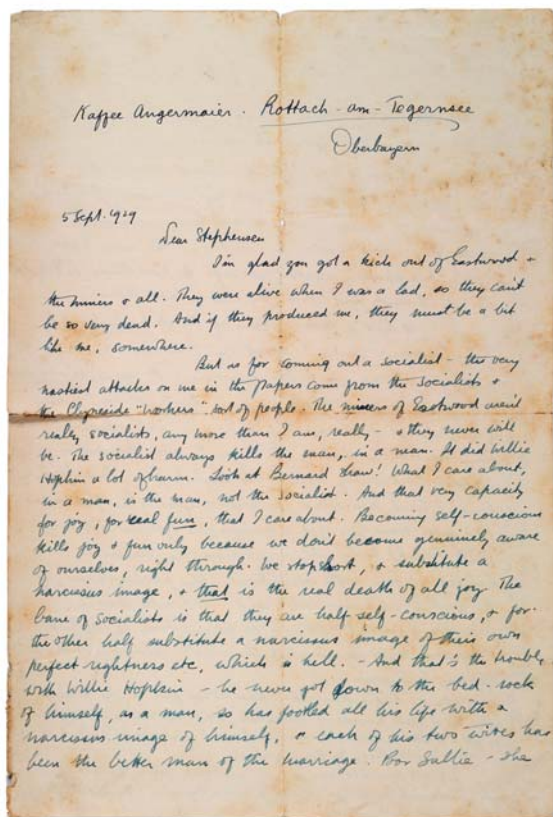 Kaffee Angermaier. Rottach-am-Tegernsee
Oberbayern
5 Sept. 1929
Dear Stephensen
I'm glad you got a kick out of Eastwood +
the miners + all. They were alive when I was a lad, so they can't
be so very dead. And if they produced me, they must be a bit
like me, somewhere.
But as for coming out a socialist - the very
nastiest attacks on me in the papers come from the socialists +
the Clydeside "workers" sort of people. The miners of Eastwood aren't
really socialists, any more than I am, really - + they never will
be. The socialist always kills the man, in a man. It did Willie
Hopkin a lot of harm. Look at Bernard Shaw! What I care about,
in a man, is the man, not the socialist. And that very capacity
for joy, for real fun, that I care about. Becoming self-conscious
kills joy + fun only because we don't become genuinely aware
of ourselves, right through. We stop short, + substitute a
narcissus image, + that is the real death of all joy. The
bane of socialists is that they are half self-conscious, + for
the other half substitute a narcissus image of their own
perfect rightness etc, which is hell. - And that's the trouble
with Willie Hopkin - he never got down to the bed-rock
of himself, as a man, so has footled all his life with a
narcissus image of himself, + each of his two wives has
been the better man of the marriage. Poor Sallie - she